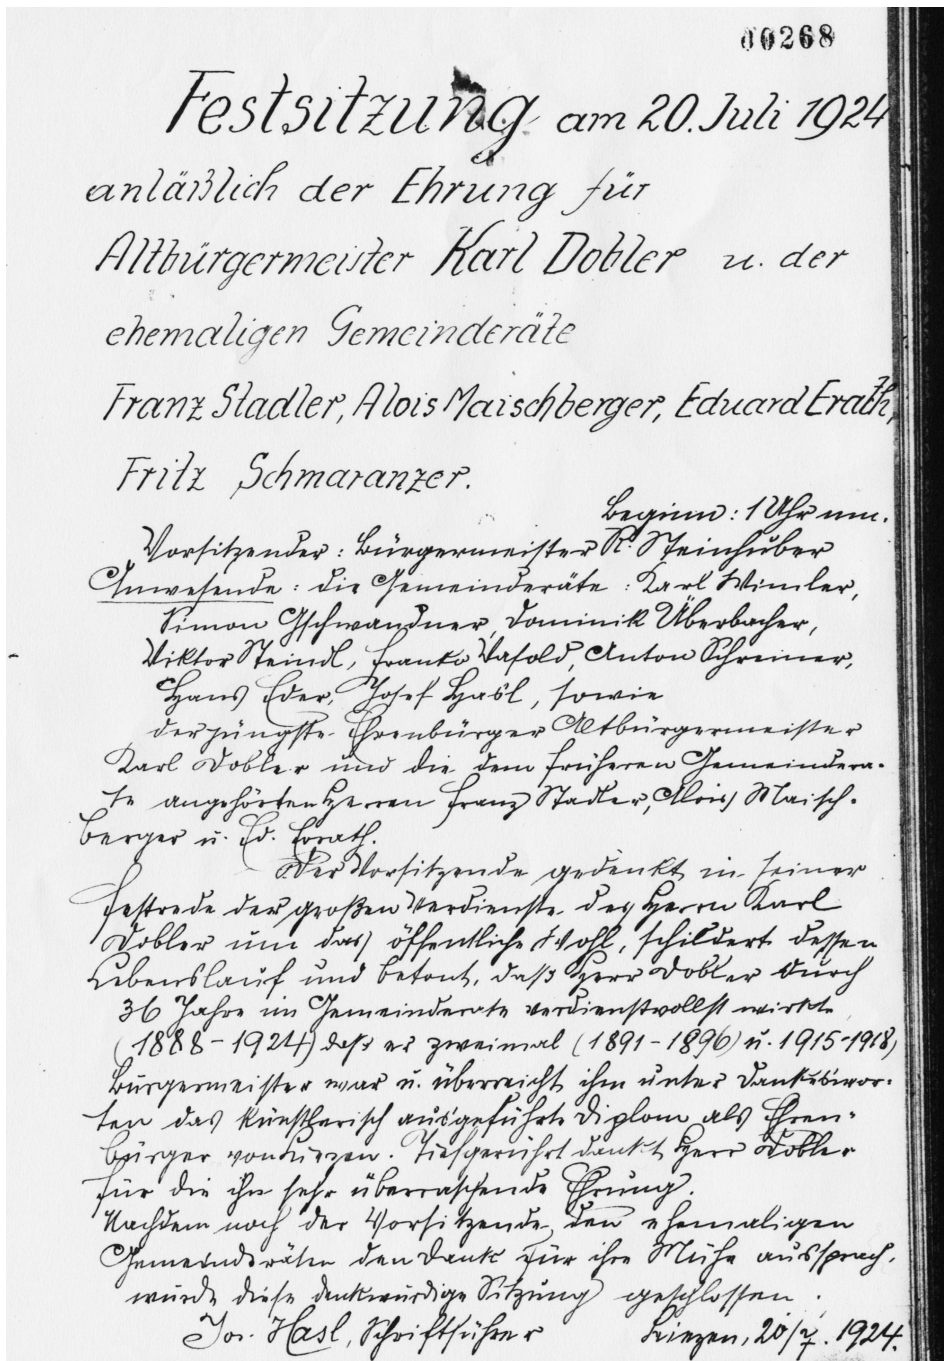 00268
Festsitzung am 20. Juli 1924
anläßlich der Ehrung für
Altbürgermeister Karl Dobler u. der
ehemaligen Gemeinderäte
Franz Stadler, Alois Maischberger, Eduard Erath,
Fritz Schmaranzer.
Beginn: 1 Uhr nm.
Vorsitzender: Bürgermeister R. Steinhuber
Anwesende: die Gemeinderäte: Karl Wimler,
Simon Gschwandner, Dominik Überbacher,
Viktor Steindl, Vasold, Anton Schreiner,
Hans Eder, Josef Hasl, sowie
der jüngste Ehrenbürger Altbürgermeister
Karl Dobler und die dem früheren Gemeindera-
te angehörten Herren Franz Stadler, Alois Maisch-
berger u. Ed. Erath.
Der Vorsitzende gedenkt in seiner
Festrede der großen Verdienste des Herrn Karl
Dobler um das öffentliche Wohl, schildert dessen
Lebenslauf und betont, daß Herr Dobler durch
36 Jahre im Gemeinderate verdienstvollst wirkte
(1888-1924) daß er zweimal (1891-1896) u. 1915-1918)
Bürgermeister war u. überreicht ihm unter Dankeswor-
ten das künstlerisch ausgeführte Diplom als Ehren-
bürger von Liezen. Tiefgerührt dankt Herr Dobler
für die ihn sehr überraschende Ehrung.
Nachdem noch der Vorsitzende den ehemaligen
Gemeinderäten den Dank für ihre Mühe aussprach,
wurde diese denkwürdige Sitzung geschlossen.
Jos. Hasl, Schriftführer Liezen, 20/7. 1924.